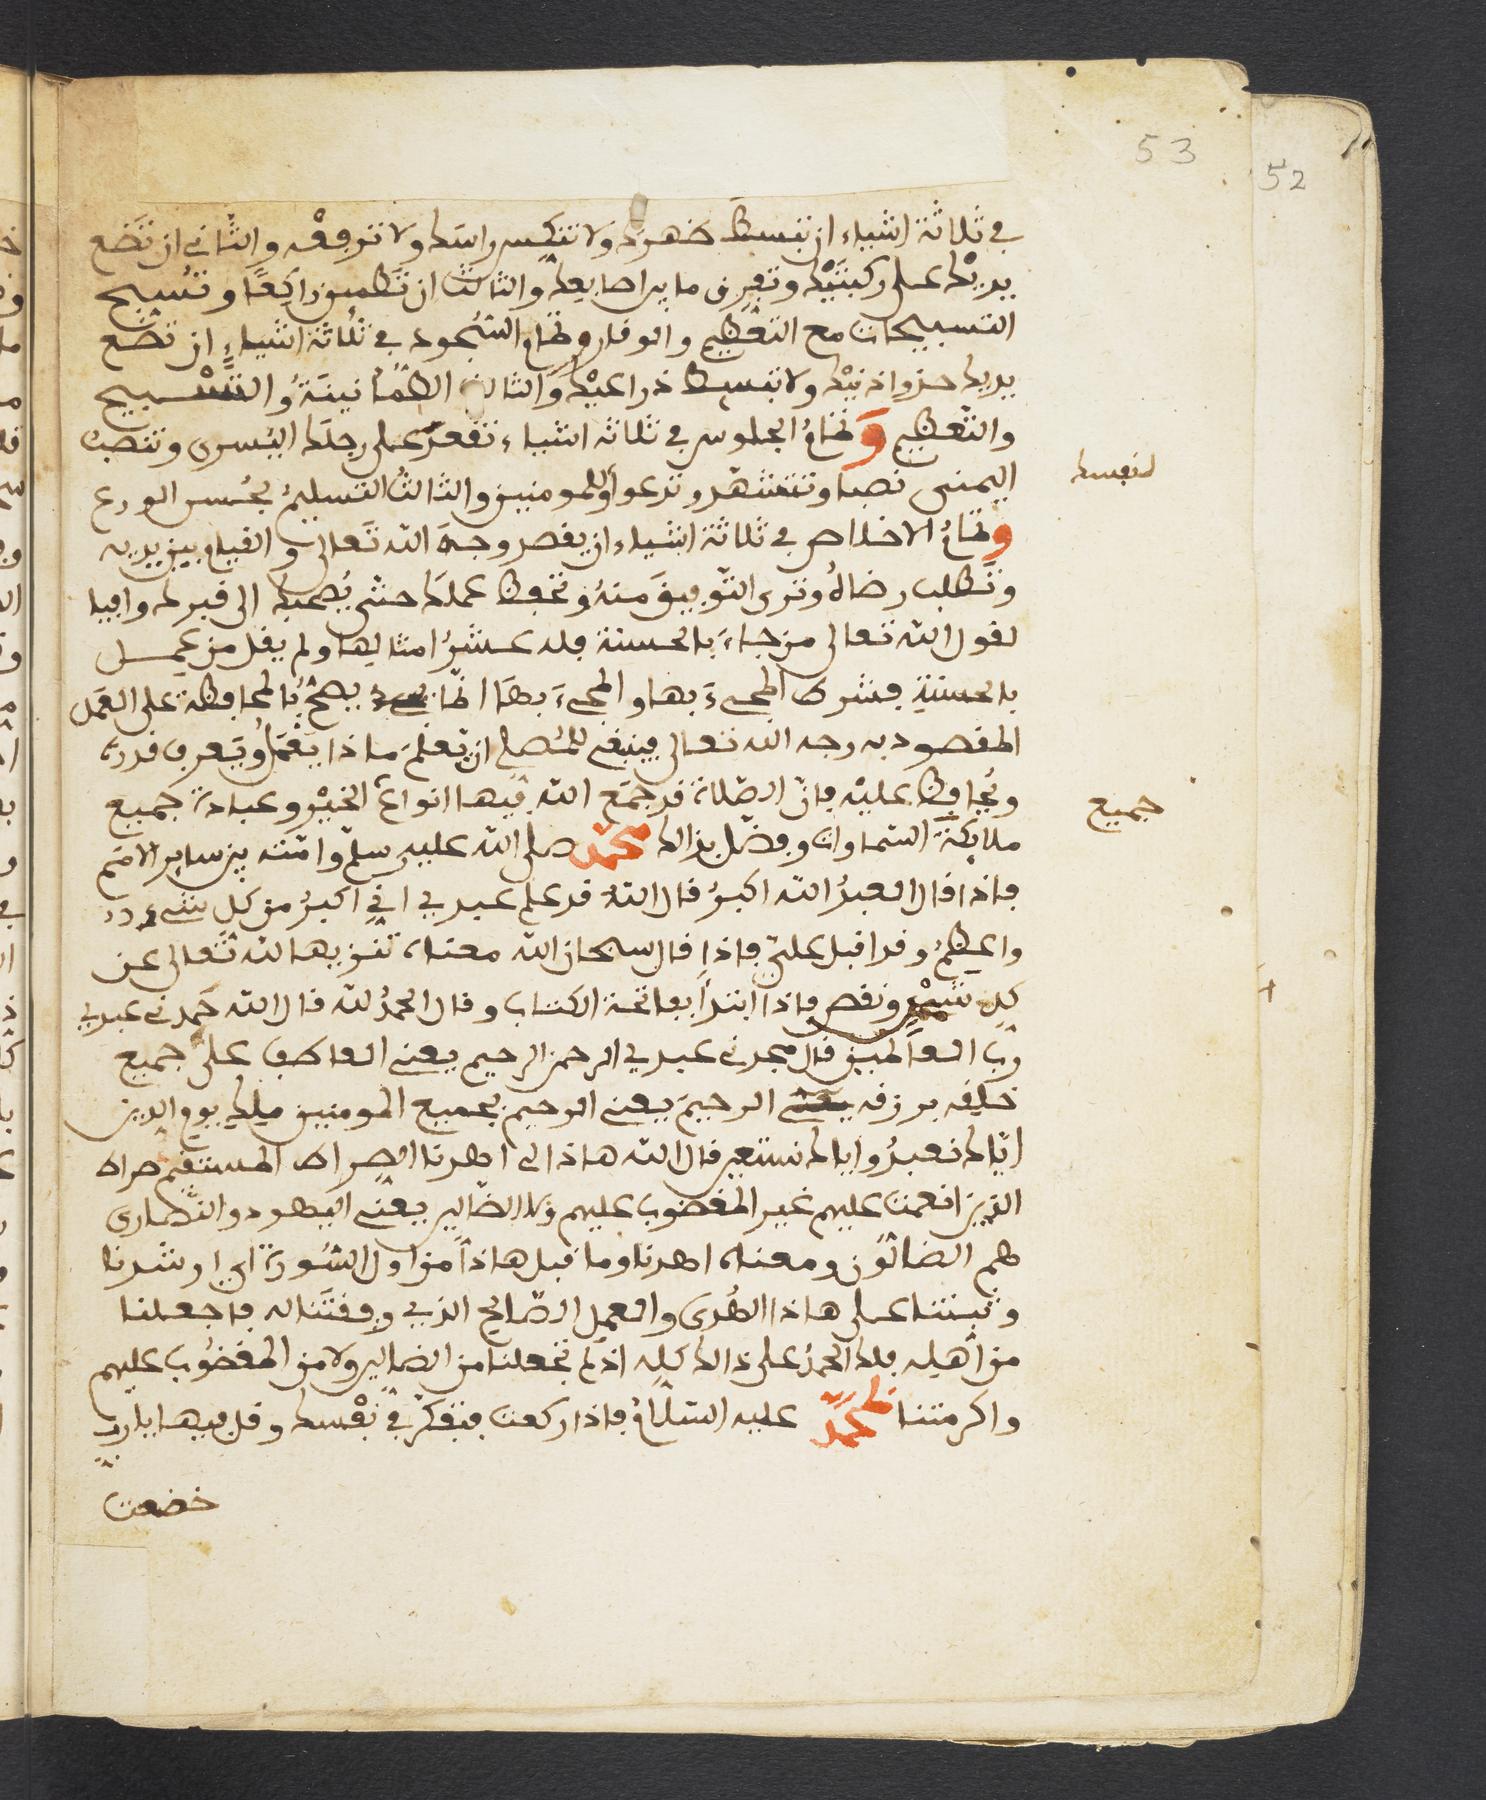 53
52
في ثلاثة اشياء ان تبسط ضهرك ولا تنكس راسك ولا ترفعه والثاني ان تضع
يديك على ركبتيك وتفرق ما بين اصابعك والثالث ان تطمين راكعا وتسبح
التسبيحات مع التعظيم والوقار وتمام السجود في ثلاثة اشياء ان تضع
يديك حذو اذنيك ولا تبسط ذراعيك والثالث الطمأنينة والتسبيح
والتعظيم وتمام الجلوس في ثلاثه اشياء تقعد على رجلك اليسرى وتنصب
اليمنى نصبا وتتشهد وتدعوا وللمومنين والثالث التسليم بحسن الورع
لنفسك
وتمام الاخلاص في ثلاثة اشياء ان يقصد وجه الله تعالى والقيام بين يديه
وتطلب رضاه وترى التوفيق منه وتحفظ عملك حتى يصحبك الى قبرك وافيا
لقول الله تعالى من جاء بالحسنة فله عشر امثالها ولم يقل من عمل
بالحسنة فشرط المجيء بها والمجيء بها انما يصح بالمحافظة على العمل
المقصود به وجه الله تعالى فينبغي للمصلي ان يعلم ماذا يفعل ويعرف قدره
ويحافظ عليه فان الصلاة قد جمع الله فيها انواع الخير وعبادة جميع
جميع
ملايكة السماوات وفضل بذالك محمد صلى الله عليه وسلم وامته بين ساير الامم
فاذا قال العبد الله اكبر قال الله قد علم عبدي اني اكبر من كل شيء
واعظم وقد اقبل علي فاذا قال سبحان الله معناه تنزيها لله تعالى عن
كل ونقص فاذا ابتدأ بفاتحة الكتاب وقال الحمد لله قال الله حمدني عبدي
رب العالمين قال مجدني عبدي الرحمن الرحيم يعني العاطف على جميع
خلقه برزقه يعني الرحيم يعني الرحيم بجميع المومنين ملك يوم الدين
اياك نعبد واياك نستعين قال الله هاذا لي اهدنا الصراط المستقيم صراط
الذين انعمت عليهم غير المغضوب عليهم ولا الضالين يعني اليهود والنصارى
هم الضالون ومعناه اهدنا وما قبل هاذا من اول السورة اي ارشدنا
وثبتنا على هاذا الهدى والعمل الصالح الذي وفقتنا له فاجعلنا
من أهله فلك الحمد على ذالك كله اذ لم تجعلنا من الضالين ولا من المغضوب عليهم
واكرمتنا بمحمد عليه السلام فاذا ركعت فتفكر في نفسك وقل فيها يا رب
خضعت